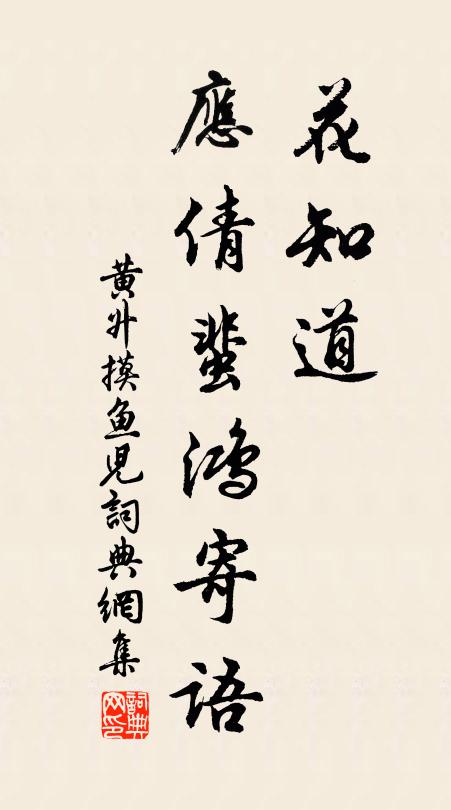 花知道
應倩蜚鴻寄語
黄升摸魚児詞典網集
詞典网印